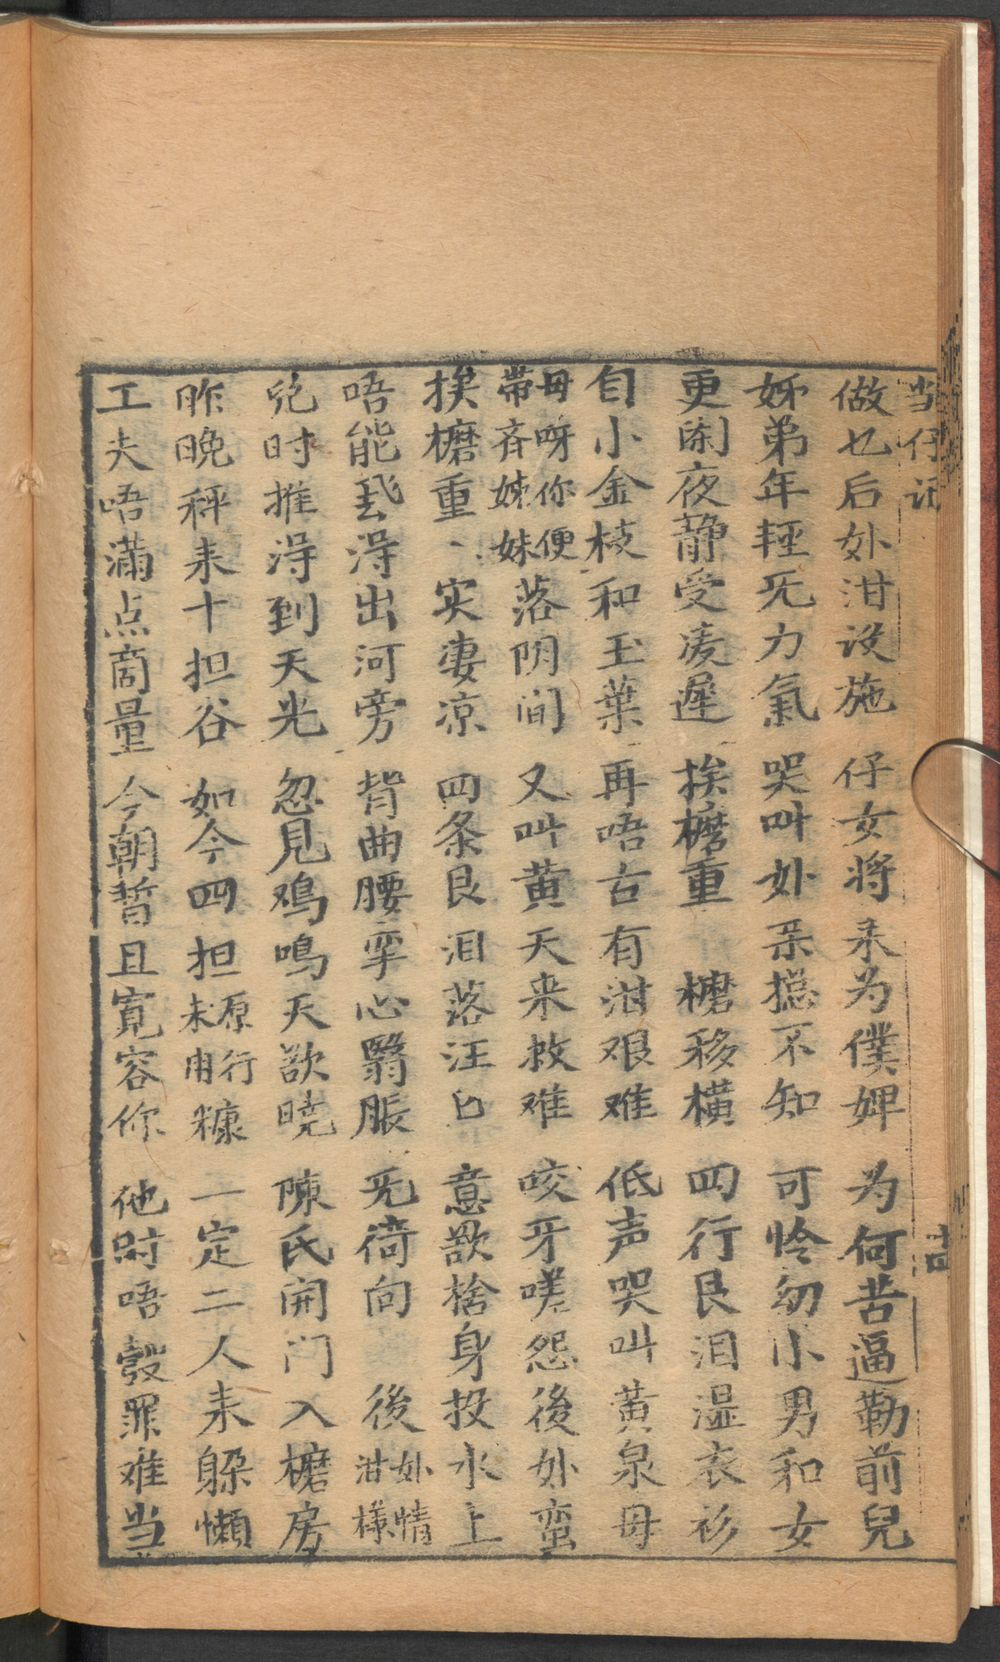 当仔记
十四
做乜后奶泔设施 仔女将来为僕婢 为何苦逼勒前兒
姊弟年輊旡力氣 哭叫奶亲搃不知 可怜幼小男和女
更闌夜静受凌遲 挨櫳重 櫳移横 四行艮泪湿衣衫
自小金枝和玉葉 再唔古有泔艰难 低声哭叫黄泉母
母呀你便帯斉姊妹落阴间 又叫黄天来救难 咬牙嘆怨後奶蛮
挨櫳重 实妻凉 四条艮泪落汪匕 意欲捨身投水上
唔能𢪱淂出河旁 背曲腰孪心翳脹 旡徛向 後奶情泔様
兒时推淂到天光 忽見鳮鳴天欲曉 陳氏開门入櫳房
昨晚秤来十担谷 如今四担原行未用糠 一定二人来躱懒
工夫唔满点商量 今朝暫且寛容你 他时唔彀罪难当